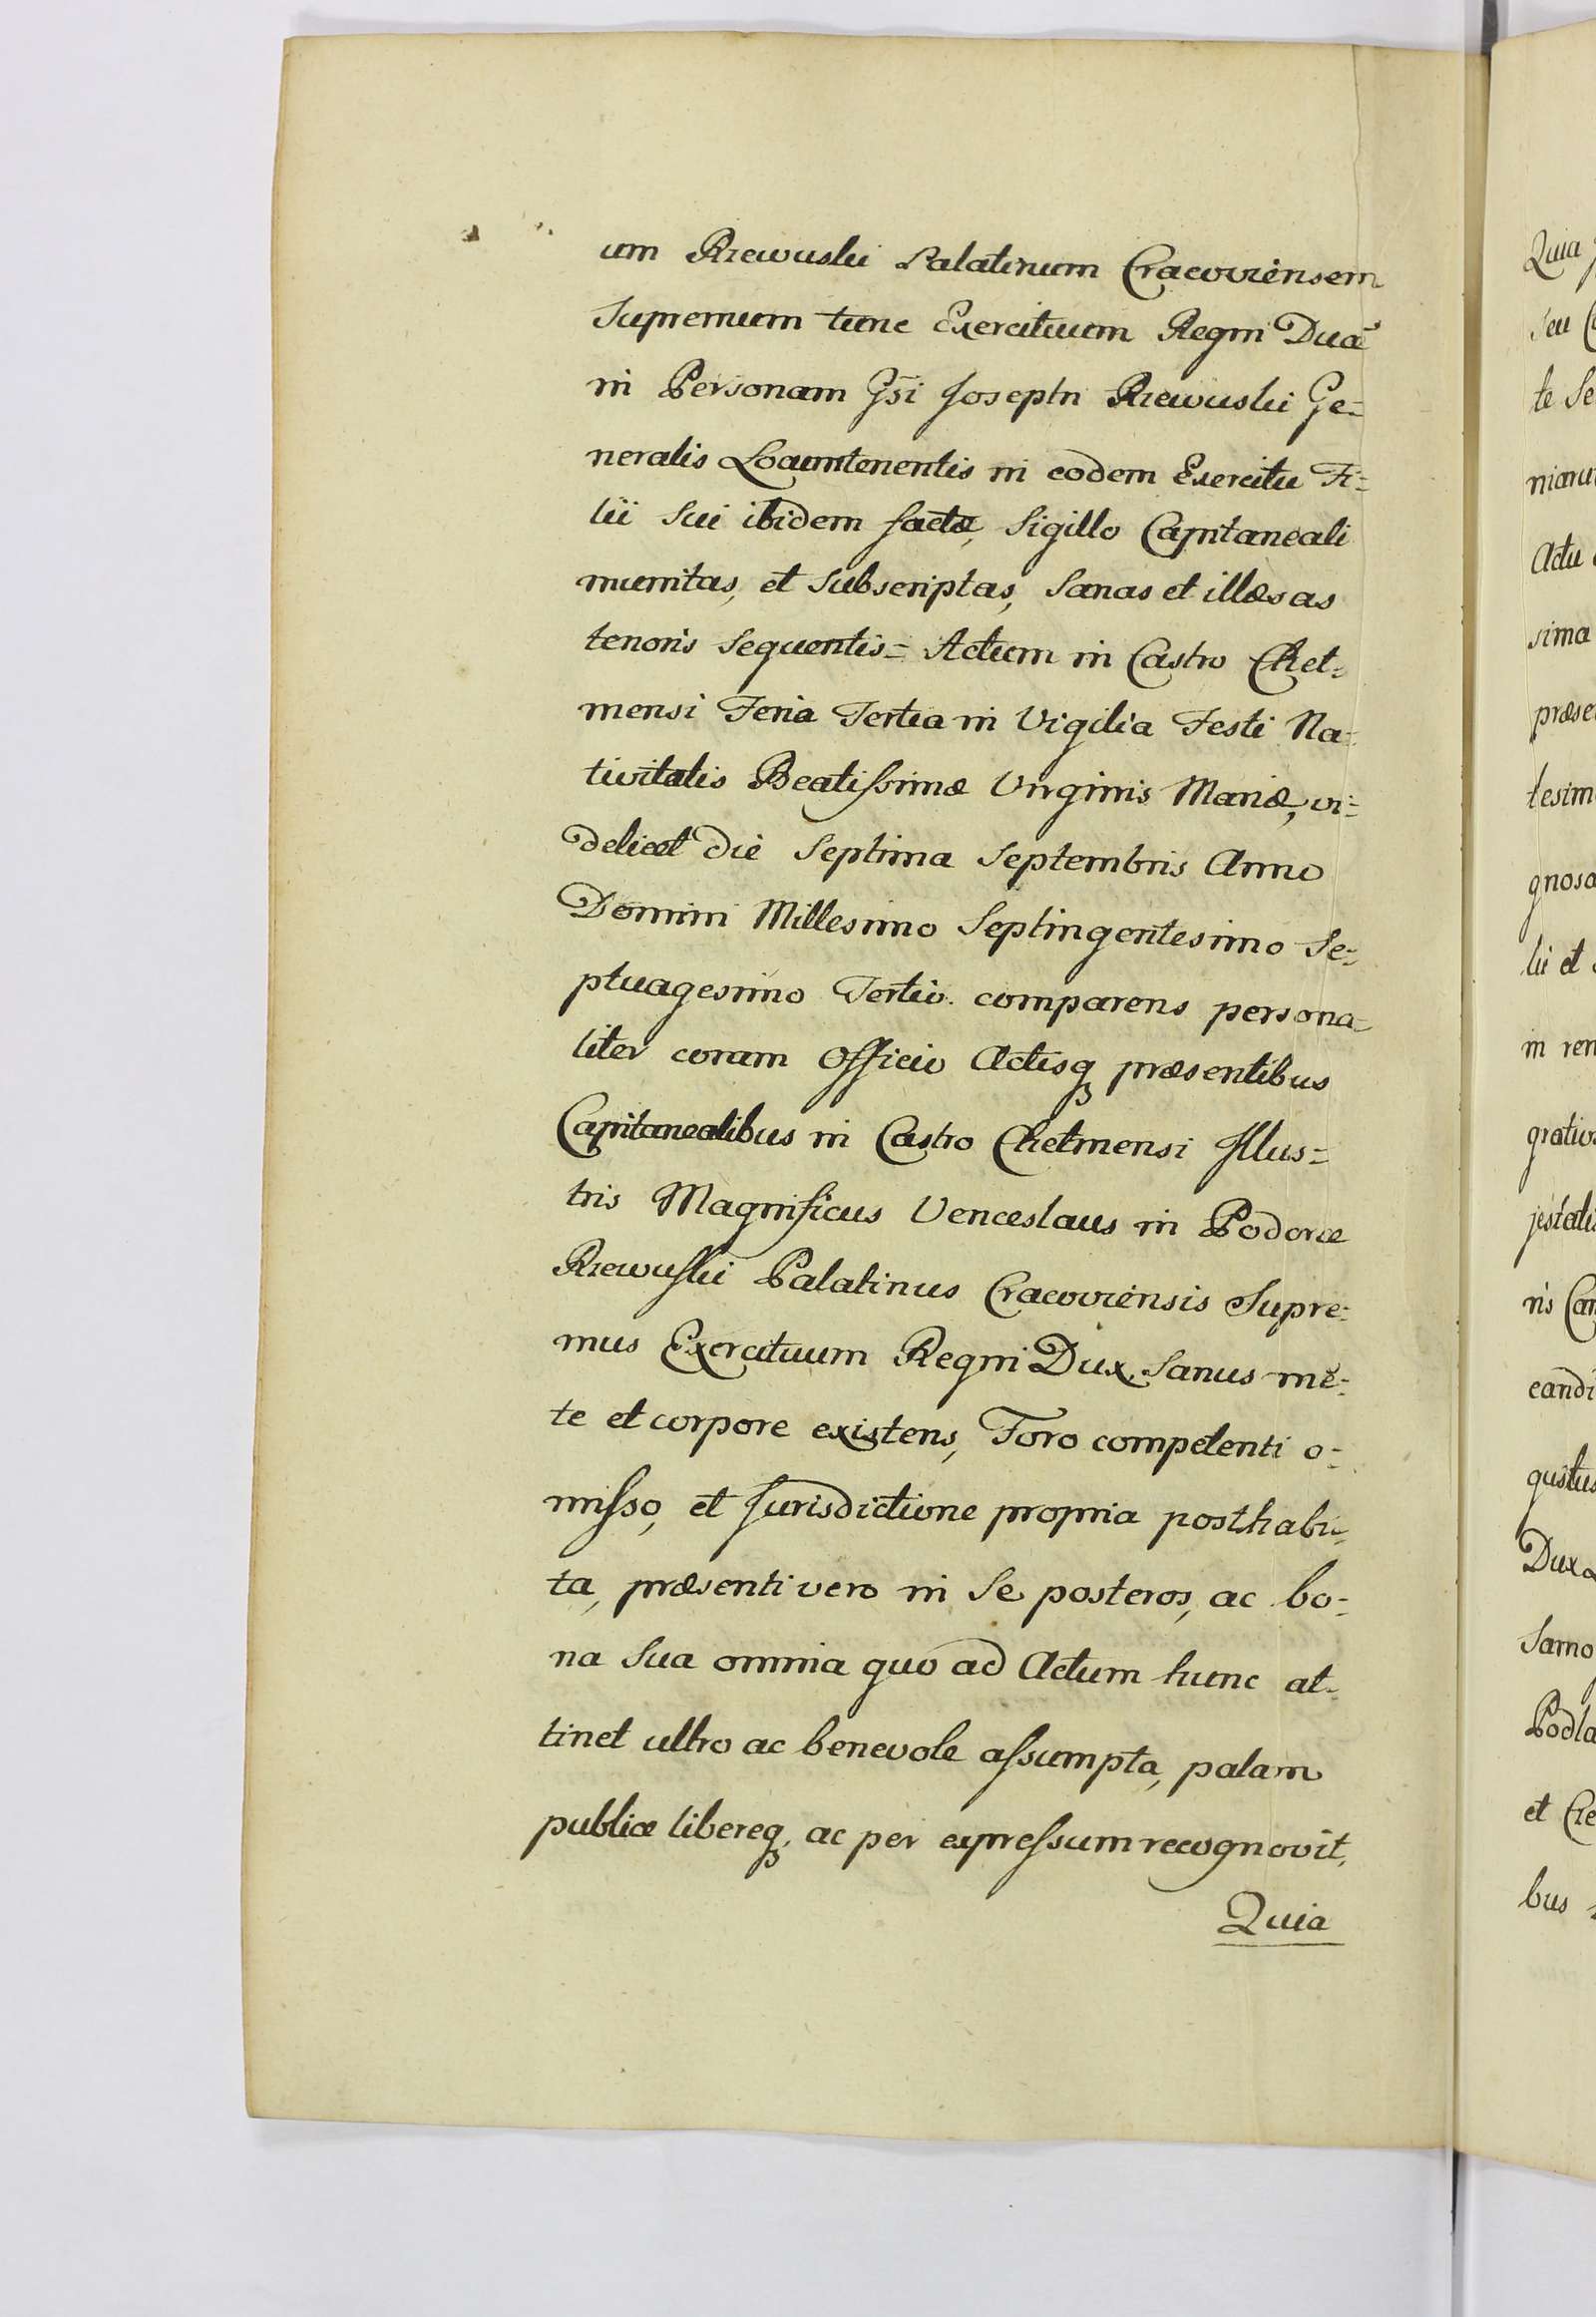 um Rzewuski Palatinum Cracoviensem
Supremum tunc Exercituum Regni Ducē
in Personam Gsi Josephi Rzewuski Ge=
neralis Locumtenentis in eodem Exercitu Fi=
lii Sui ibidem factæ, Sigillo Capitaneali
munitas, et Subscriptas, Sanas et illæsas
tenoris Sequentis= Actum in Castro Chel=
mensi Feria Tertia in Vigilia Festi Na=
tivitatis Beatissimæ Virginis Mariæ, vi=
delicet die Septima Septembris Anno
Domini Millesimo Septingentesimo Se=
ptuagesimo Tertio. comparens persona=
liter coram Officio Actisq præsentibus
Capitanealibus in Castro Chelmensi Illus=
tris Magnificus Venceslaus in Podorce
Rzewuski Palatinus Cracoviensis Supre=
mus Exercituum Regni Dux, Sanus mē=
te et corpore existens, Foro competenti o=
misso, et Jurisdictione propria posthabi=
ta, præsenti vero in Se posteros, ac bo=
na Sua omnia quo ad Actum hunc at=
tinet ultro ac benevole assumpta, palam
publice libereq, ac per expressum recognovit,
Quia
Quia
Seu
te Se
niaru
Actu
sima
præse
tesim
gnosc
lii et
in rem
grativ
jestatis
ris Can
candi
gustus
Dux
Sarno
Podla
et Cre
bus